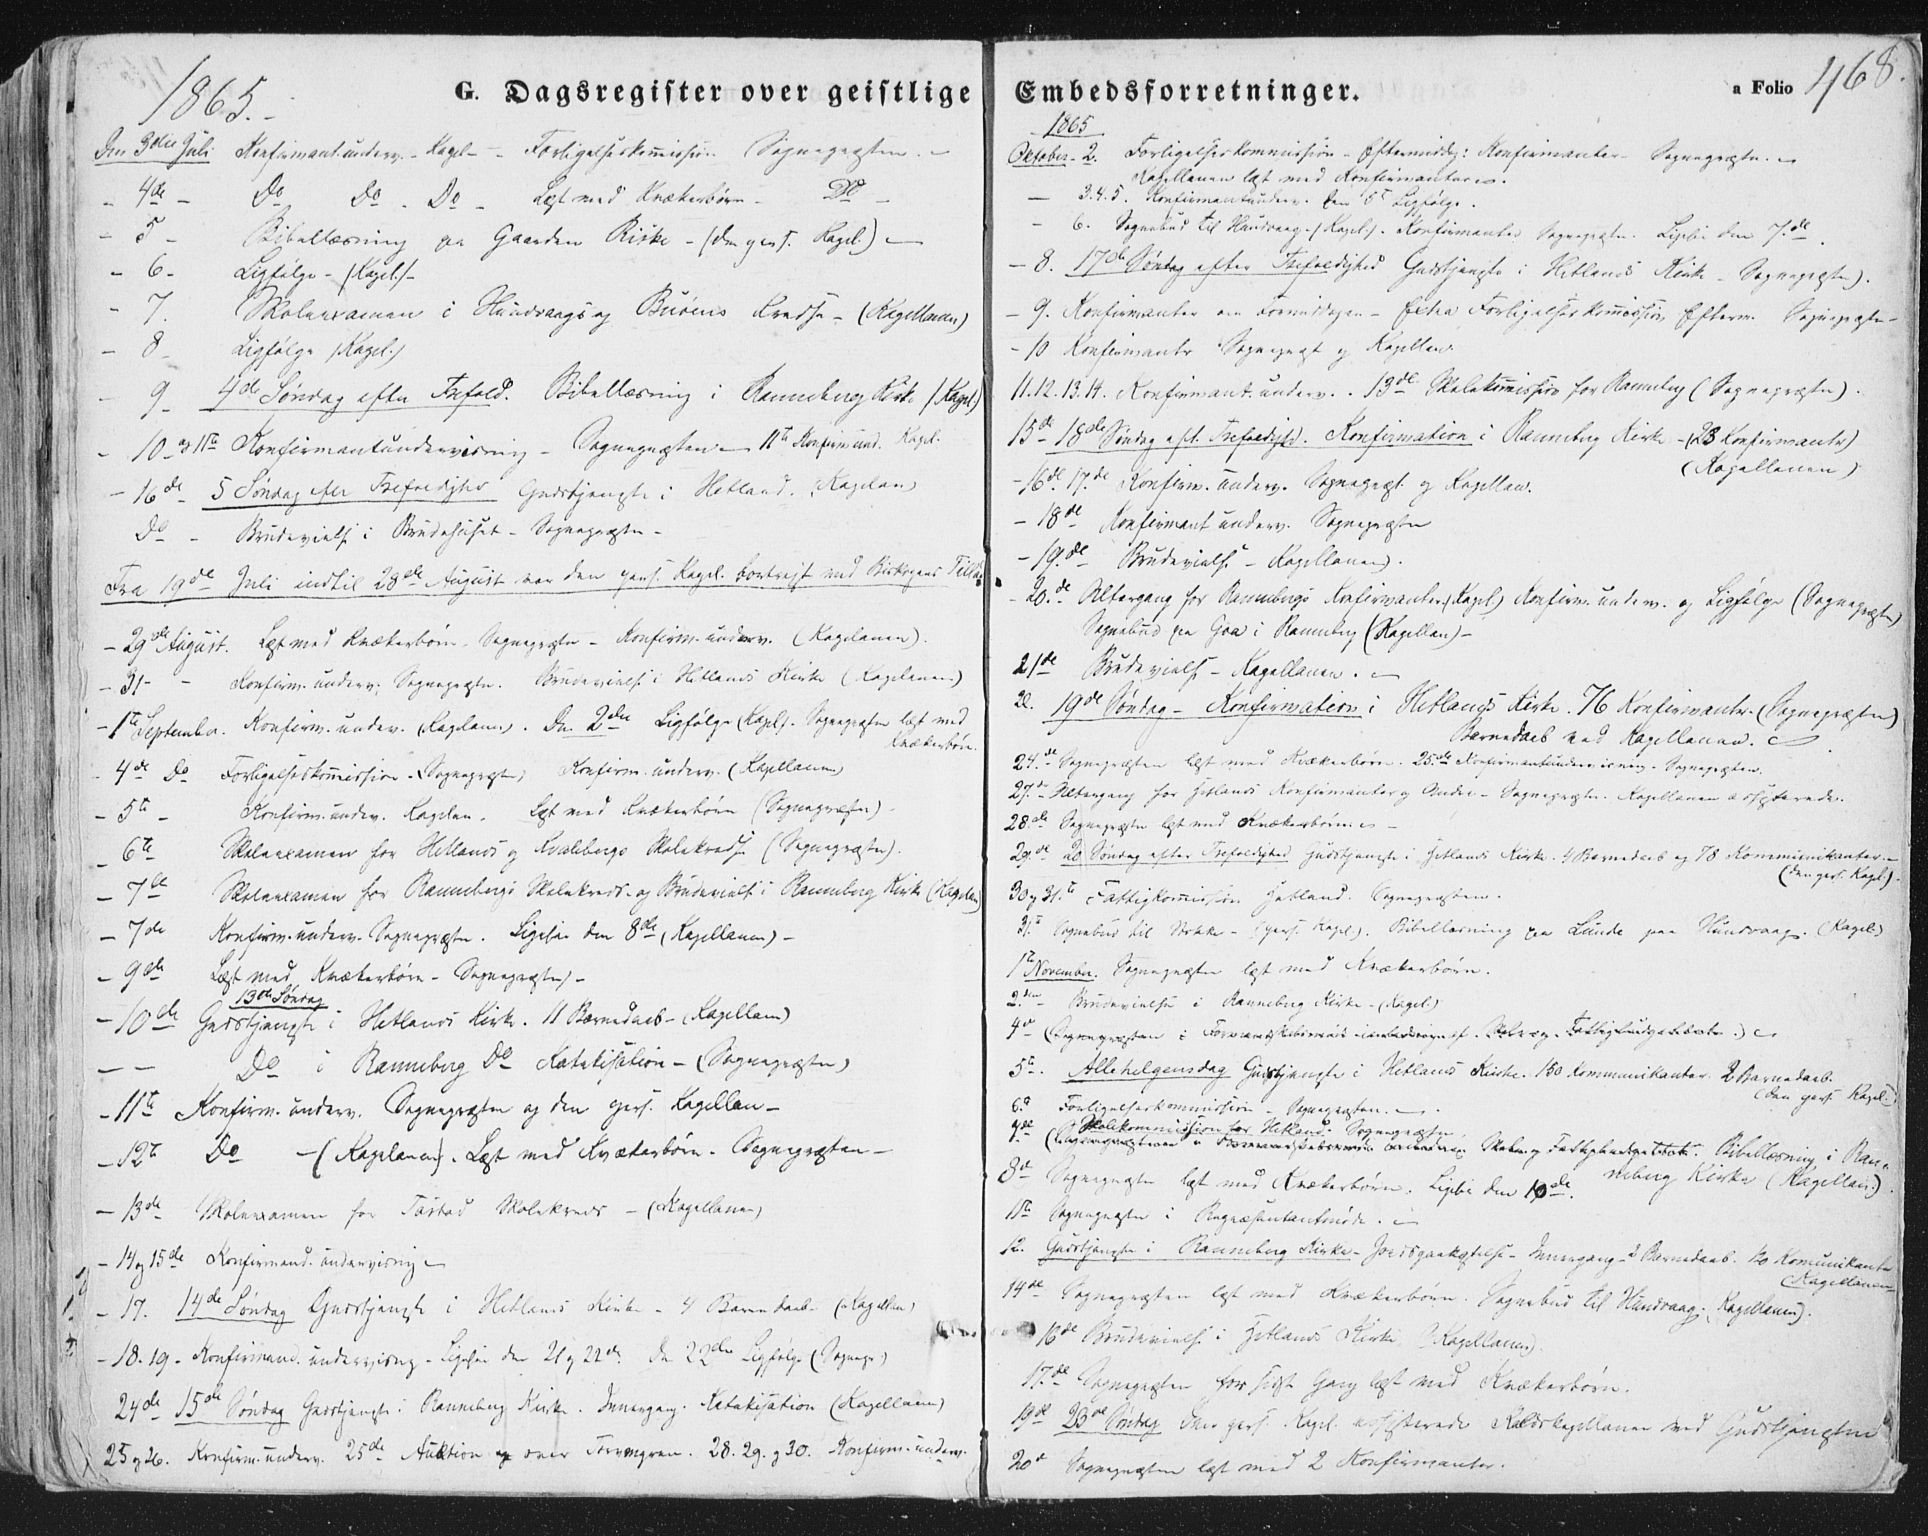 1865.
G. Dagsregister over geistlige
Den 3die Juli Konfirmant.underv. - Kapel - Forligelseskomission Sognepræsten. -
- 4de - Do Do - Do - Læst med Kvækerbørn - Do -
- 5 - Bibellæsning paa Gaarden Riske - (den pers. Kapel.) -
- 6 - Ligfølge - (Kapel.) -
- 7. Skoleexamen i Hundvaags og Buøens Kreds - (Kapellanen)
- 8 - Ligfølge (Kapel.)
- 9 - 4de Søndag efter Trefold. Bibellæsning i Ranneberg Kirke (Kapel.)
- 10 og 11te Konfirmantundervisning - Sognepræsten - 11te Konfirmund. Kapel.
- 16de 5 Søndag efter Trefoldighed Gudstjeneste i Hetland. (Kapelan)
Do - Brudevielse i Brudehuset - Sognepræsten -
Fra 19de Juli indtil 28de August var den pers. Kapel. bortrejst med Biskopens
- 29de August. Læst med Kvækerbørn - Sognepræsten - Konfirm. underv. (Kapelanen).
- 31 - - Konfirm. underv. Sognepræsten. Brudevielse i Hetlands Kirke (Kapelanen)
- 1te September. Konfirm. underv. (Kapelanen). Den 2den Ligfølge (Kapel). Sognepræsten læst med
Kvækerbørn.
- 4de Do Forligelseskomission - (Sognepræsten) Konfirm. underv. (Kapellanen)
- 5te - Konfirm. underv. Kapelan. Læst med Kvækerbørn (Sognepræsten) -
- 6te Skoleexamen for Hetlands og Kvalebergs Skolekreds (Sognepræsten).
- 7de Skoleexamen for Rannebergs Skolekreds - og Brudevielse i Ranneberg Kirke (Kapelan)
- 7de Konfirm. underv. Sognepræsten. Ligesaa den 8de (Kapellanen) -
- 9de Læst med Kvækerbørn - Sognepræsten) -
13de Søndag
- 10de Gudstjeneste i Hetlands Kirke. 11 Barnedaab - (Kapellan)
- - Do i Ranneberg Do Katekisation - (Sognepræsten)
- 11te Konfirm. underv. Sognepræsten og den pers. Kapellan -
- 12te Do - (Kapelanen). Læst med Kvækerbørn - Sognepræsten -
- 13de Skoleexamen for Tastad Skolekreds - (Kapellanen)
- 14 og 15de Konfirmand. undervisning -
- 17. 14de Søndag Gudstjeneste i Hetlands Kirke - 4 Barnedaab (Kapellan)
- 18. 19 - Konfirmand. undervisng - Ligesaa den 21 og 22de. Den 22de Ligfølge (Sognepr.)
24de 15de Søndag Gudstjeneste i Ranneberg Kirke. Katekisation (Kapellanen)
25 og 26. Konfirm. underv. 25de Auktion over 28. 29. og 30. Konfirm. underv.
Embedsforretninger.
a Folio 468.
1865
Oktober - 2. Forligelseskommission - Eftermiddag: Konfirmanter - Sognepræsten. -
Kapellanen læst med Konfirmanterne.
- 3. 4. 5. Konfirmantunderv. Den 5te Ligfølge.
- 6. Sognebud til Hundvaag - (Kapel). Konfirmanter Sognepræsten. Ligesaa den 7.de
- 8. 17de Søndag efter Trefoldighed Gudstjeneste i Hetlands Kirke - Sognepræsten).
- 9. Konfirmanter om Formiddagen - Extra Forligelseskommission Efterm. Sognepræsten -
- 10 Konfirmanter Sognepræst og Kapellan
11. 12. 13. 14. Konfirmant. underv. . 13de Skolekomission for Ranneberg (Sognepræsten).
15de 18de Søndag eft. Trefoldighd. Konfirmation i Ranneberg Kirke - (28 Konfirmanter)
(Kapellanen)
- 16de. 17.de Konfirm. underv. Sognepræst og Kapellan.
- 18de Konfirmant underv. Sognepræsten
- 19.de Brudevielse - Kapellanen).
- 20.de Altergang for Rannebergs Konfirmanter (Kapel) Konfirm. underv. og Ligfølge (Sognepræsten)
Sognebud paa Goa i Ranneberg (Kapellan) -
21de Brudevielse - Kapellanen. -
22. 19de Søndag - Konfirmation i Hetlands Kirke. 76 Konfirmanter. (Sognepræsten)
Barnedaab ved Kapellanen.
24.de Sognepræsten læst med Kvækerbørn. 25.de Konfirmantundervisning - Sognepræsten.
27.de Altergang for Hetlands Konfirmanter og Andre - Sognepræsten. Kapellanen assisterede.
28.de Sognepræsten læst med Kvækerbørnene -
29.de 20 Søndag efter Trefoldighed Gudstjeneste i Hetlands Kirke. 4 Barnedaab og 78 Kommunikanter. -
(den pers. Kapel).
30 og 31.te Fattigkomission Hetland. Sognepræsten.
31te Sognebud til Stokke - (pers. Kapel). Bibellæsning paa Lunde paa Hundvaag. (Kapel)
1te November. Sognepræsten læst med Kvækerbørn.
2.den Brudevielse i Ranneberg Kirke - (Kapel)
4de (Sognepræsten i Formandskabsmøde
5te. Allehelgensdag Gudstjeneste i Hetlands Kirke. 150 Kommunikanter 2 Barnedaab.
(den pers. Kapel.)
6.te Forligelseskommission - Sognepræsten. -
7de Skolekommission for Hetland. Sognepræsten Bibellæsning i Ran=
neberg Kirke (Kapellan).
8de Sognepræsten læst med Kvækerbørn. Ligesaa den 10de.
11te Sognepræsten i Repræsentantmøde. -
12. Gudstjeneste i Ranneberg Kirke - 2 Barnedaab. Komunikanter
(Kapellanen)
14de Sognepræsten læst med Kvækerbørn. Sognebud til Hundvaag. (Kapellanen).
16de Brudevielse i Hetlands Kirke (Kapellanen).
17.de Sognepræsten for sidste Gang læst med Kvækerbørn.
19de 23de Søndag Den pers. Kapel. assisterede Kaldskapellanen ved Gudstjenesten
20de Sognepræsten læst med 2 Konfirmanter.